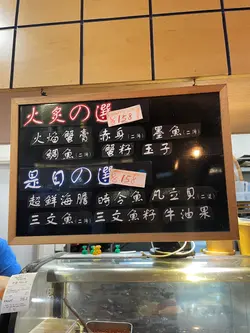 火炙の選 $158
火焰蟹膏 赤身(二貫) 墨魚(二貫)
鯛魚(二貫) 蟹籽 玉子
是日の選 $158
超鮮海膽 時令魚 帆立貝(二貫)
三文魚(二貫) 三文魚籽 牛油果